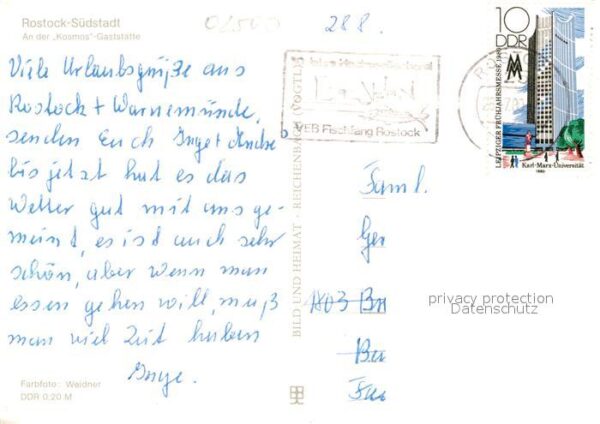 Rostock-Südstadt
An der „Kosmos"-Gaststätte
288.
Viele Urlaubsgrüße aus
Rostock + Warnemünde,
senden Euch Inge + Andre
bis jetzt hat es das
Wetter gut mit uns ge-
meint, es ist auch sehr
schön, aber wenn man
essen gehen will, muß
man viel Zeit haben
Inge.
Farbfoto: Weidner
DDR 0,20 M
BILD UND HEIMAT · REICHENBACH (VOGTL)
VEB Fischfang Rostock
10
DDR
MM
LEIPZIGER FRÜHJAHRSMESSE 1980
Karl-Marx-Universität
1980
Faml.
Ger
1803 Bn
privacy protection
Datenschutz